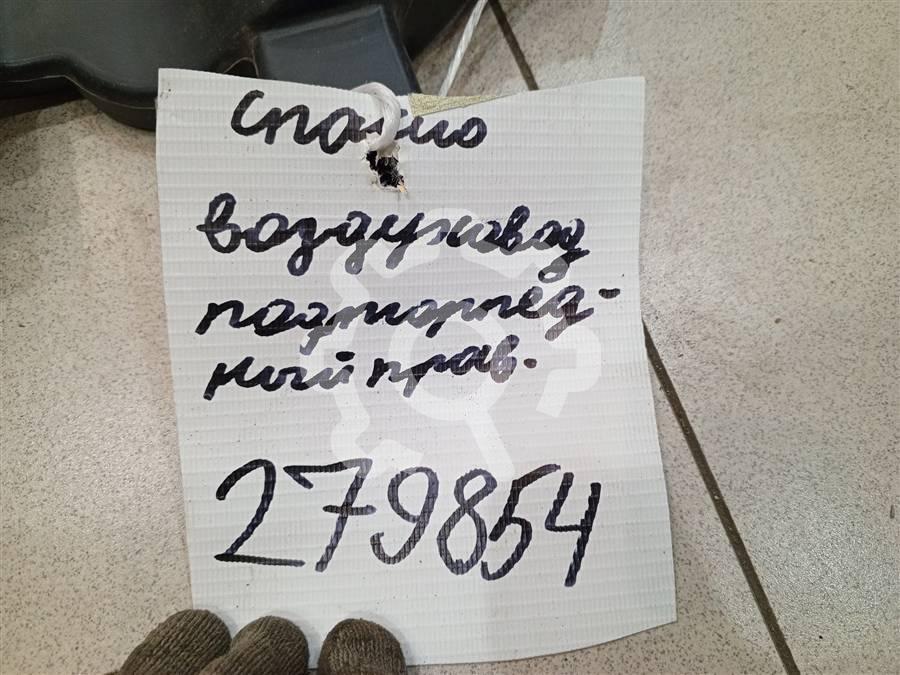 воздуховод
подторпед-
ный прав.
279854